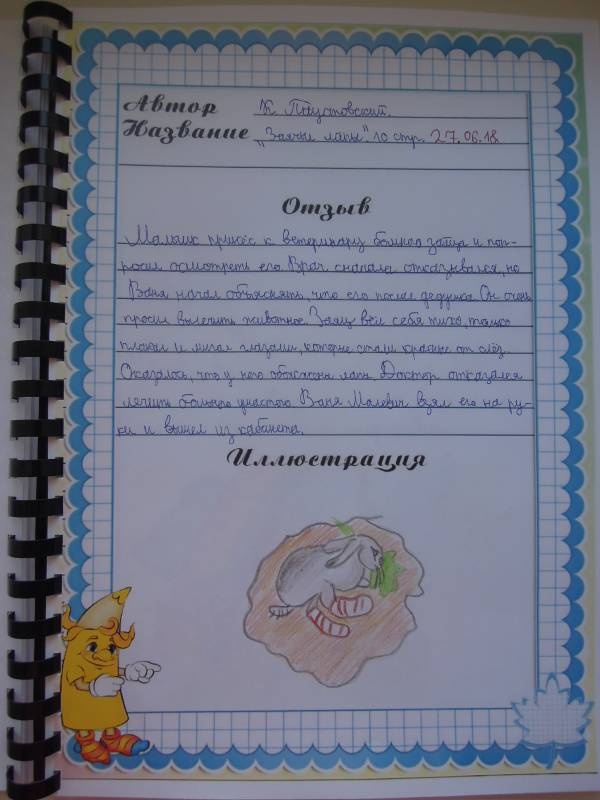 Автор К Паустовский.
Название "Заячьи лапы". 10 стр. 27.06.18
Отзыв
Мальчик принёс к ветеринару больного зайца и поп-
росил осмотреть его. Врач сначала отказывался, но
Ваня начал объяснять, что его послал дедушка. Он очень
просил вылечить животное. Заяц вёл себя тихо, только
плакал и мигал глазами, которые стали красные от слёз.
Оказалось, что у него обожжены лапы. Доктор отказался
лечить больного ушастого. Ваня Малявин взял его на ру-
ки и вышел из кабинета.
Иллюстрация